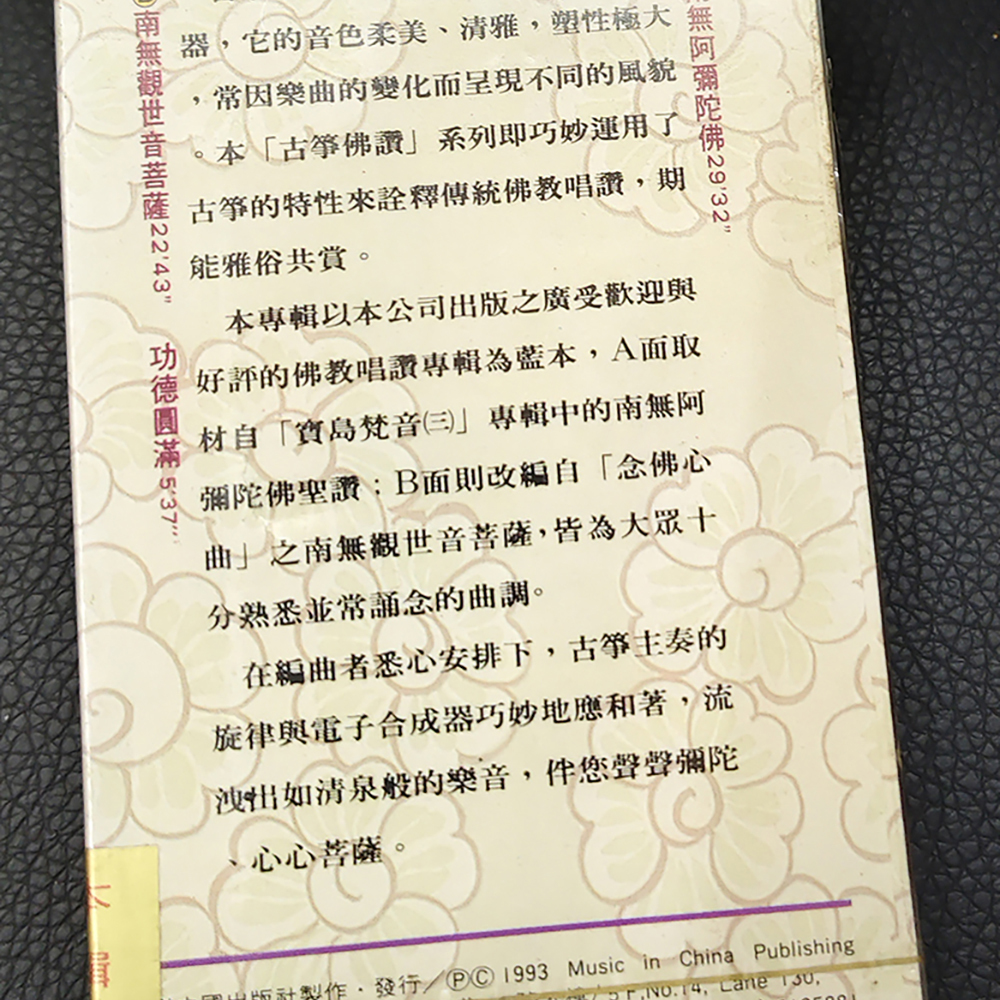 南無觀世音菩薩22'43" 功德圓滿5'37"
無阿彌陀佛29'32"
器，它的音色柔美、清雅，塑性極大
，常因樂曲的變化而呈現不同的風貌
。本「古箏佛讚」系列即巧妙運用了
古箏的特性來詮釋傳統佛教唱讚，期
能雅俗共賞。
本專輯以本公司出版之廣受歡迎與
好評的佛教唱讚專輯為藍本，A面取
材自「寶島梵音㈢」專輯中的南無阿
彌陀佛聖讚；B面則改編自「念佛心
曲」之南無觀世音菩薩，皆為大眾十
分熟悉並常誦念的曲調。
在編曲者悉心安排下，古箏主奏的
旋律與電子合成器巧妙地應和著，流
洩出如清泉般的樂音，伴您聲聲彌陀
、心心菩薩。
國出版社製作．發行／ⓅⒸ1993 Music in China Publishing
5F,No.14, Lane 130,